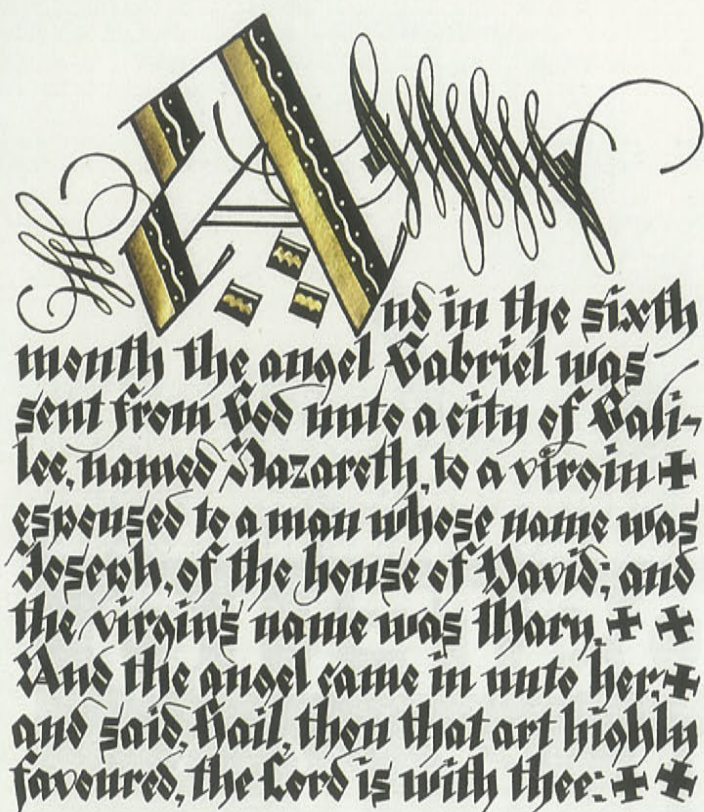 And in the sixth
month the angel Gabriel was
sent from God unto a city of Gali-
lee, named Nazareth, to a virgin ✚
espoused to a man whose name was
Joseph, of the house of David; and
the virgin's name was Mary. ✚ ✚
And the angel came in unto her, ✚
and said, Hail, thou that art highly
favoured, the Lord is with thee: ✚ ✚